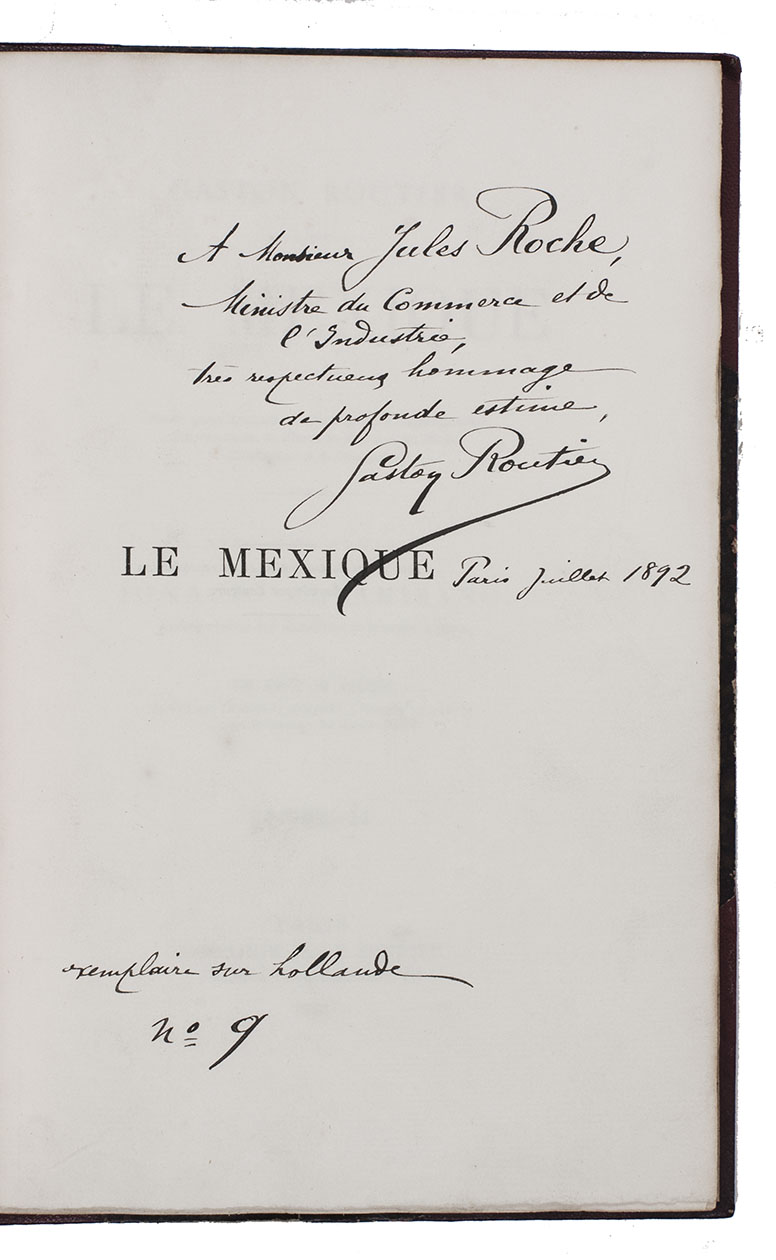 A Monsieur Jules Roche,
Ministre du Commerce et de
l'Industrie,
très respectueux hommage
de profonde estime,
Gaston Routier
LE MEXIQUE Paris Juillet 1892
exemplaire sur hollande
nº 9